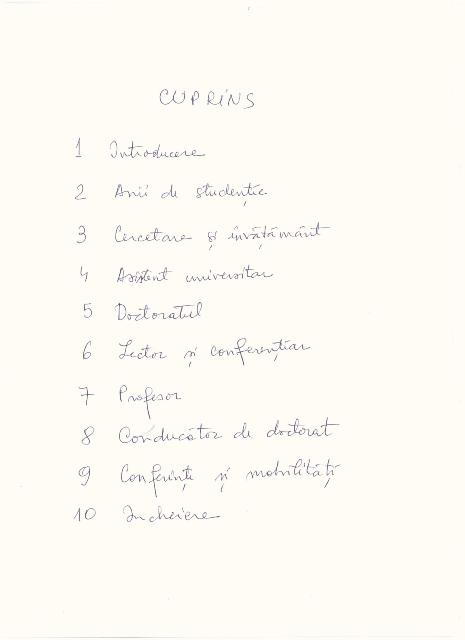 CUPRINS
1 Introducere
2 Anii de studenție
3 Cercetare și învățământ
4 Asistent universitar
5 Doctoratul
6 Lector și conferențiar
7 Profesor
8 Conducător de doctorat
9 Conferințe și mobilități
10 Incheiere